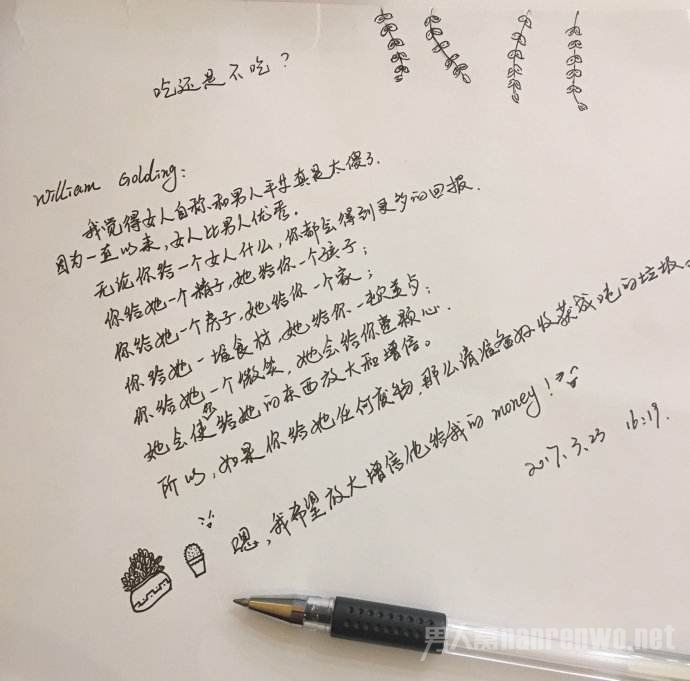 吃还是不吃？
William Golding:
我觉得女人自称和男人平等真是太傻了.
因为一直以来,女人比男人优秀.
无论你给一个女人什么,你都会得到更多的回报.
你给她一个精子,她给你一个孩子;
你给她一个房子,她给你一个家;
你给她一堆食材,她给你一顿美食;
你给她一个微笑,她会给你整颗心.
她会使你给她的东西放大和增倍。
所以,如果你给她任何废物,那么请准备好收获成吨的垃圾.
嗯,我希望放大增倍他给我的money!
2017.3.23 16:19.
男人窝nanrenwo.net